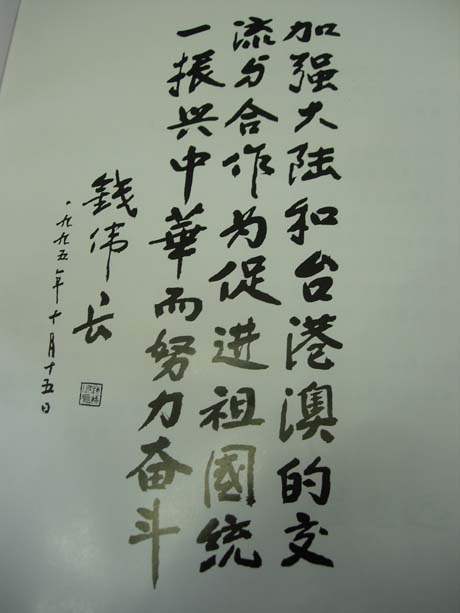 加强大陆和台港澳的交
流与合作为促进祖國统
一振兴中華而努力奋斗
錢伟长
一九九五年十月十五日